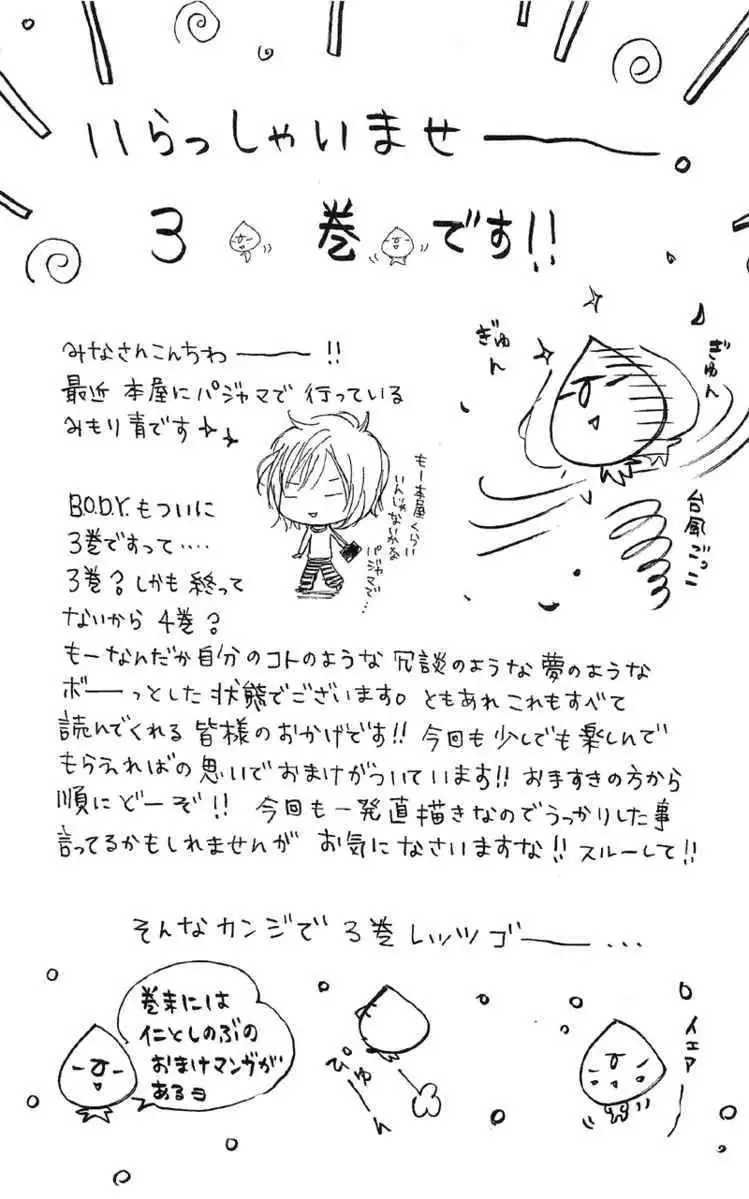 いらっしゃいませー
3巻です!!
ぎゅん
ぎゅん
みなさんこんちわー!!
最近 本屋にパジャマで 行っている
みもり青です
もー本屋くらい
いんじゃないかな
パジャマで…
台風ごっこ
B.O.D.Y.もついに
3巻ですって‥‥
3巻? しかも 終って
ないから 4巻?
もーなんだか自分のコトのような 冗談のような 夢のような
ボーっとした 状態でございます。ともあれ これもすべて
読んでくれる 皆様のおかげです!! 今回も 少しでも 楽しんで
もらえればの 思いで おまけがついています!! お手すきの方から
順に どーぞ!! 今回も 一発直描きなので うっかりした事
言ってるかもしれませんが お気になさいますな!! スルーして!!
そんなカンジで 3巻 レッツゴー…
巻末には
仁としのぶの
おまけマンガが
あるヨ
ぴゅーん
イェアー